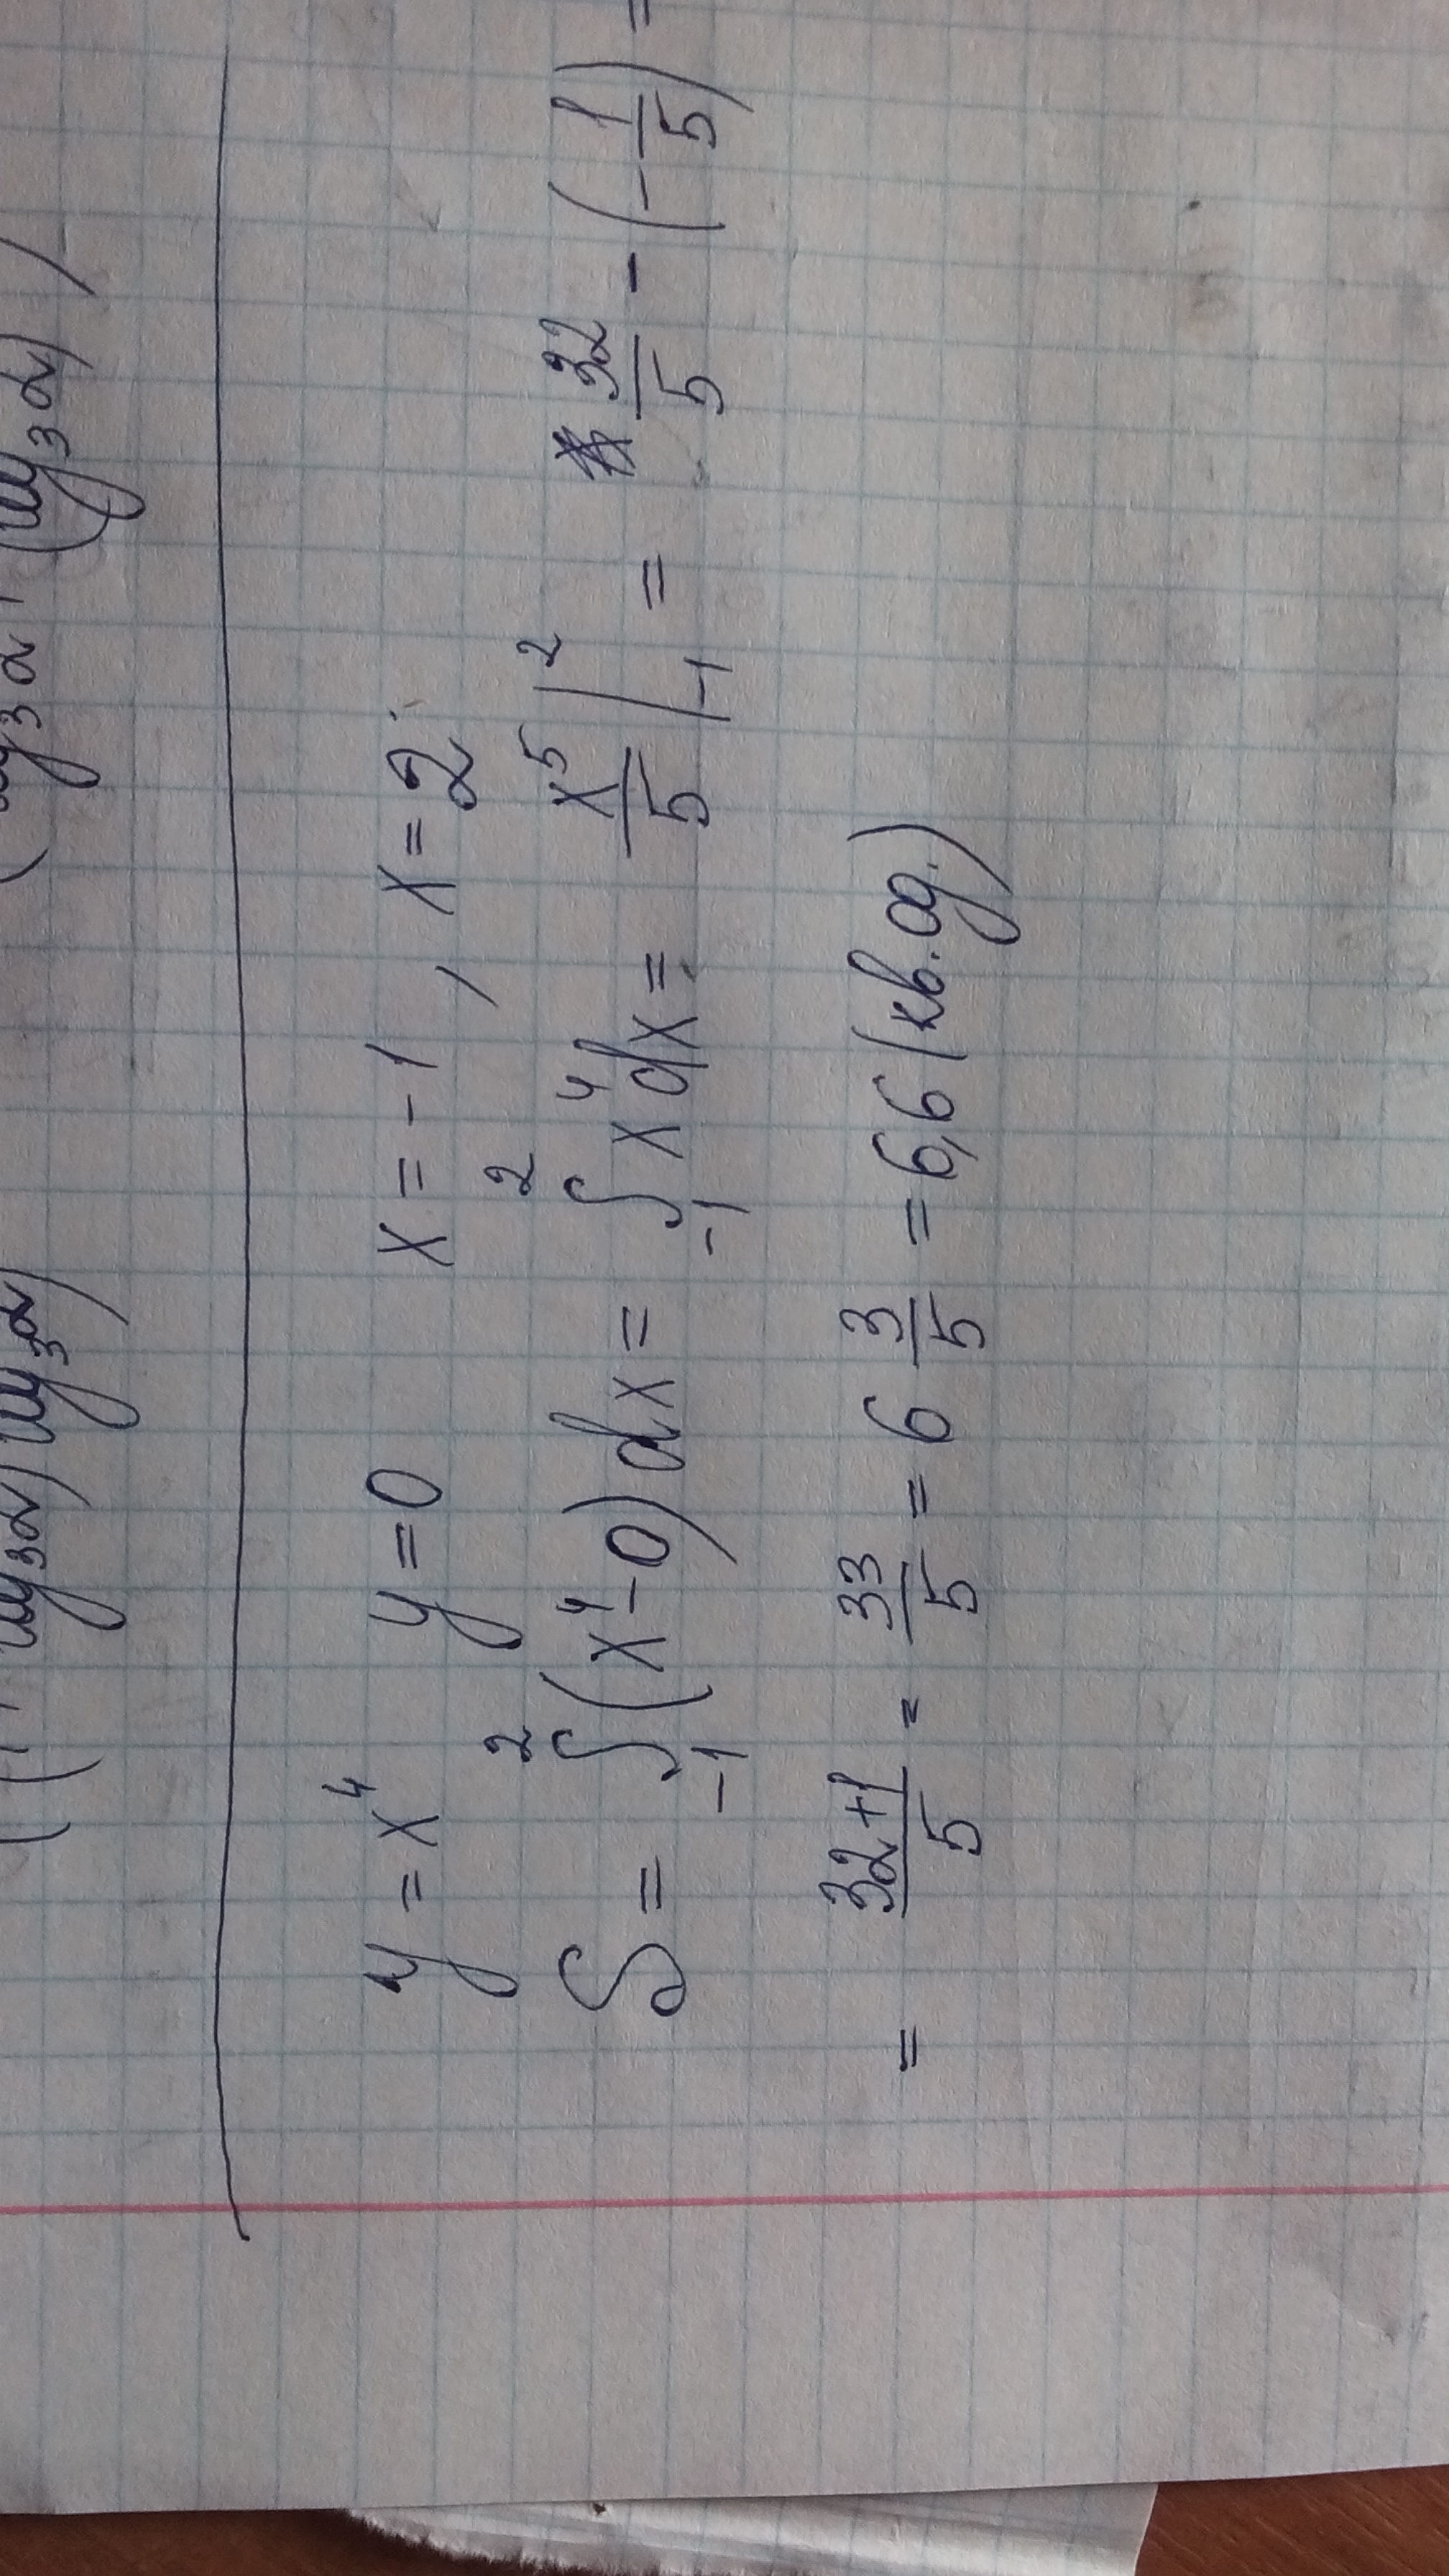 y = x⁴ y = 0 x = -1, x = 2
S = ∫₋₁² (x⁴ - 0) dx = ∫₋₁² x⁴ dx = x⁵/5 |₋₁² = 32/5 - (-1/5) =
= (32+1)/5 = 33/5 = 6 3/5 = 6,6 (кв. од.)